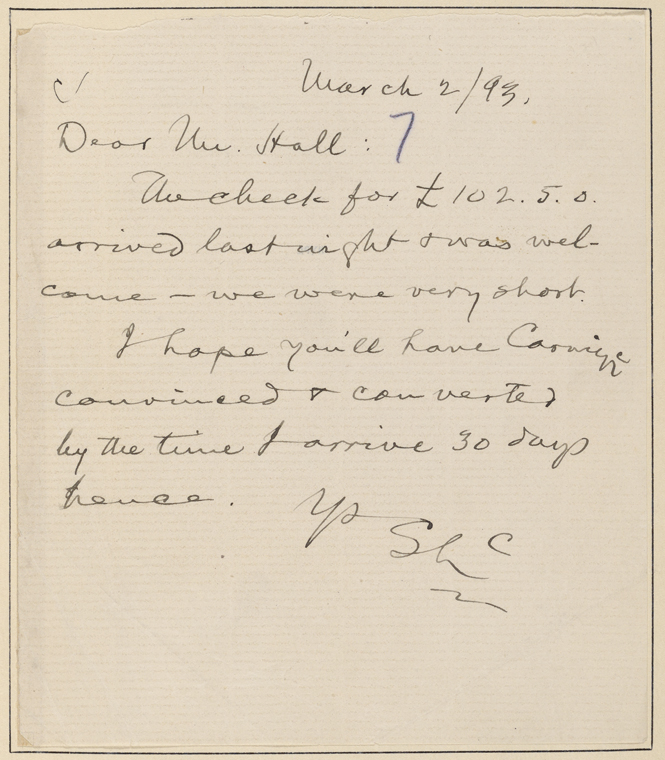 March 2/93.
Dear Mr. Hall: 7
The check for £102.5.0.
arrived last night & was wel-
come — we were very short.
I hope you'll have Carnige
convinced & converted
by the time I arrive 30 days
hence.
Ys
SLC